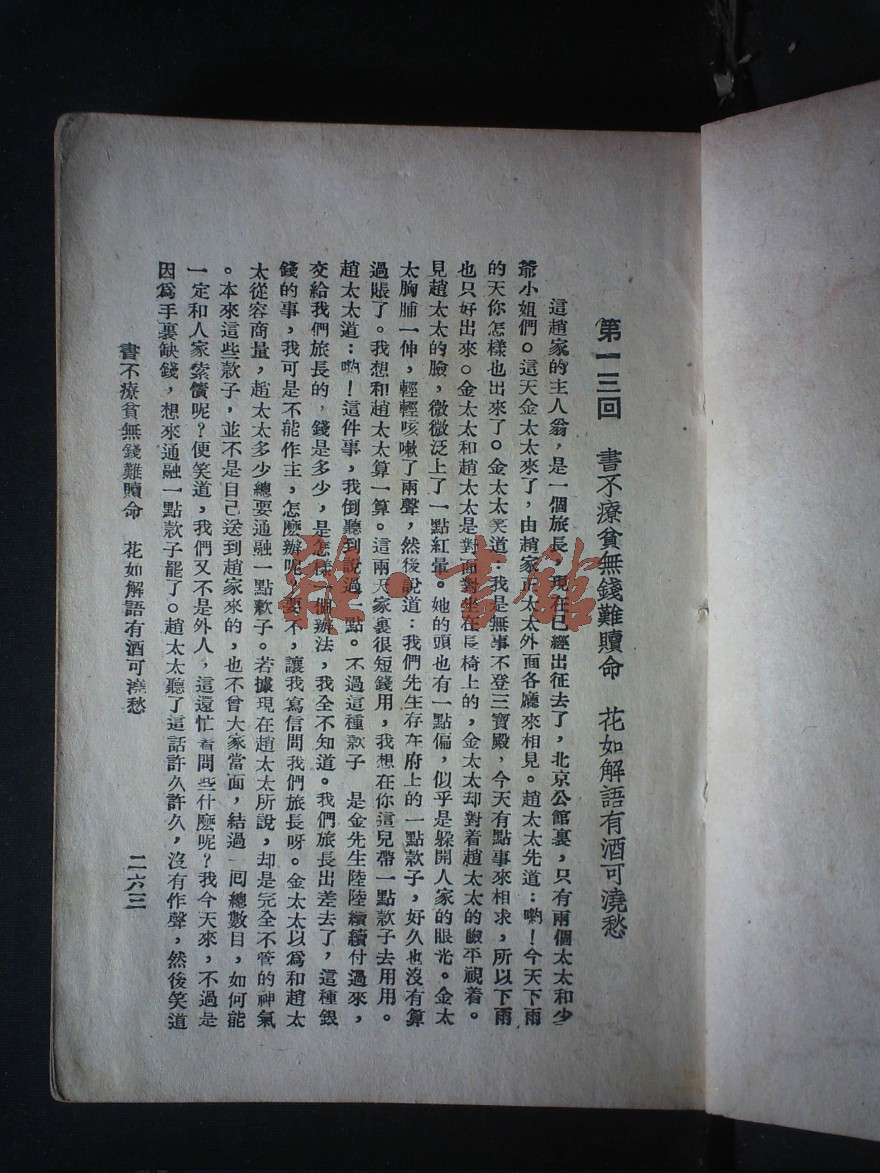 第一三回　書不療貧無錢難贖命　花如解語有酒可澆愁
這趙家的主人翁，是一個旅長，現在已經出征去了，北京公館裏，只有兩個太太和少
爺小姐們。這天金太太來了，由趙家正太太外面各廳來相見。趙太太先道：喲！今天下雨
的天你怎樣也出來了。金太太笑道：我是無事不登三寶殿，今天有點事來相求，所以下雨
也只好出來。金太太和趙太太是對面對坐在長椅上的，金太太却對着趙太太的臉平視着。
見趙太太的臉，微微泛上了一點紅暈。她的頭也有一點偏，似乎是躱開人家的眼光。金太
太胸脯一伸，輕輕咳嗽了兩聲，然後說道：我們先生存在府上的一點款子，好久也沒有算
過賬了。我想和趙太太算一算。這兩天家裏很短錢用，我想在你這兒帶一點款子去用用。
趙太太道：喲！這件事，我倒聽到說過一點。不過這種款子　是金先生陸陸續續付過來，
交給我們旅長的，錢是多少，是怎樣一個辦法，我全不知道。我們旅長出差去了，這種銀
錢的事，我可是不能作主，怎麽辦呢，要不，讓我寫信問我們旅長呀。金太太以爲和趙太
太從容商量，趙太太多少總要通融一點款子。若據現在趙太太所說，却是完全不管的神氣
。本來這些款子，並不是自己送到趙家來的，也不曾大家當面，結過一囘總數目，如何能
一定和人家索債呢？便笑道，我們又不是外人，這還忙着問些什麽呢？我今天來，不過是
因爲手裏缺錢，想來通融一點款子罷了。趙太太聽了這話許久許久，沒有作聲，然後笑道
書不療貧無錢難贖命　花如解語有酒可澆愁
二六三
雜·書館